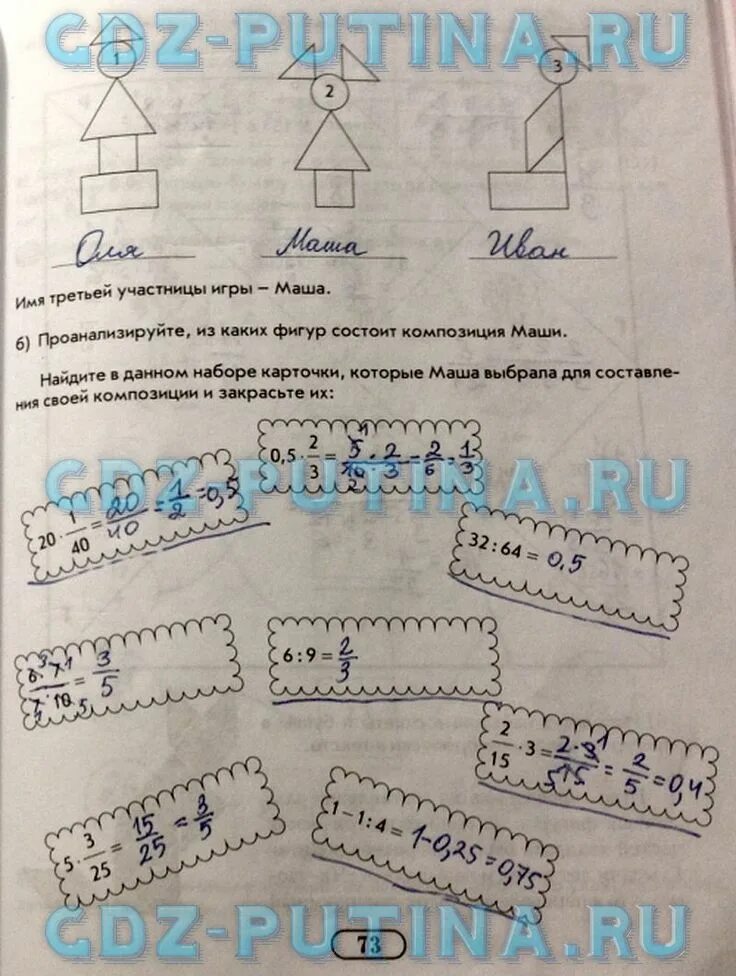 GDZ-PUTINA.RU
1
2
3
Оля
Маша
Иван
Имя третьей участницы игры – Маша.
б) Проанализируйте, из каких фигур состоит композиция Маши.
Найдите в данном наборе карточки, которые Маша выбрала для составле-
ния своей композиции и закрасьте их:
0,5 · 2/3 = 5 · 2 / 10 · 3 = 2/6 = 1/3
GDZ-PUTINA.RU
20 · 1/40 = 20/40 = 1/2 = 0,5
32 : 64 = 0,5
6 · 7 / 7 · 10 = 3/5
6 : 9 = 2/3
2/15 · 3 = 2 · 3 / 15 = 2/5 = 0,4
5 · 3/25 = 15/25 = 3/5
1 – 1 : 4 = 1 - 0,25 = 0,75
GDZ-PUTINA.RU
73